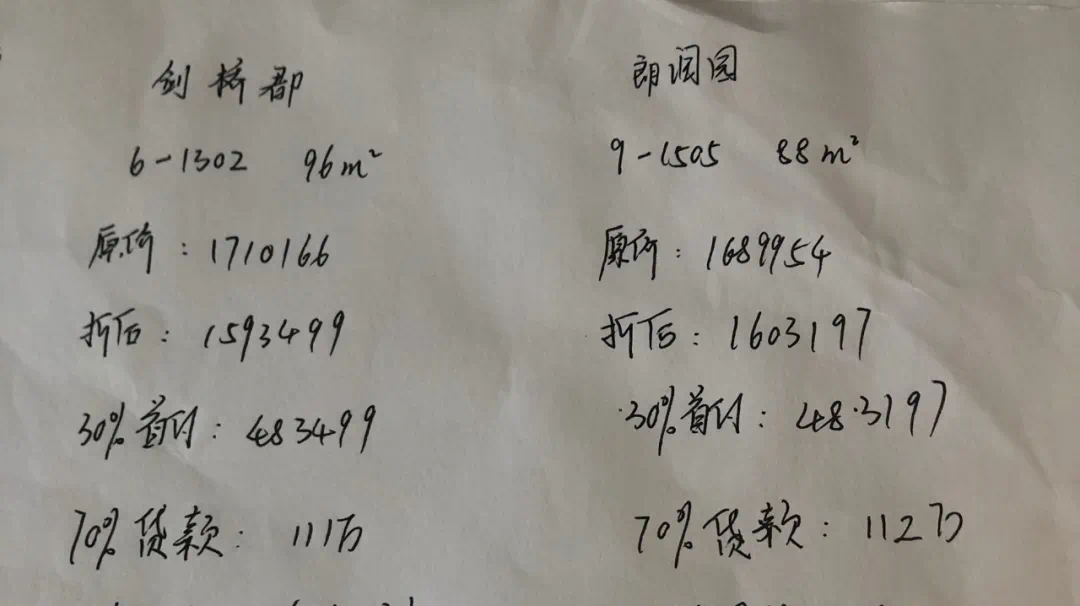 剑桥郡
6-1302 96m²
原价：1710166
折后：1593499
30%首付：483499
70%贷款：111万
朗润园
9-1505 88m²
原价：1689954
折后：1603197
30%首付：48.3197
70%贷款：112万